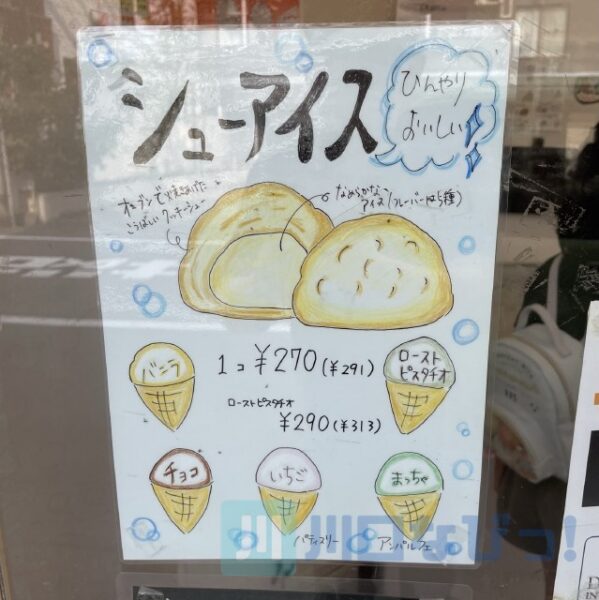 シューアイス
ひんやり
おいしい
オーブンで焼きあげた
こうばしいクッキーシュー
なめらかな
アイス(フレーバーは5種)
バニラ
1コ ¥270(¥291)
ローストピスタチオ
¥290(¥313)
ロースト
ピスタチオ
チョコ
いちご
まっちゃ
パティスリー アンパルフェ
川口なびっ!